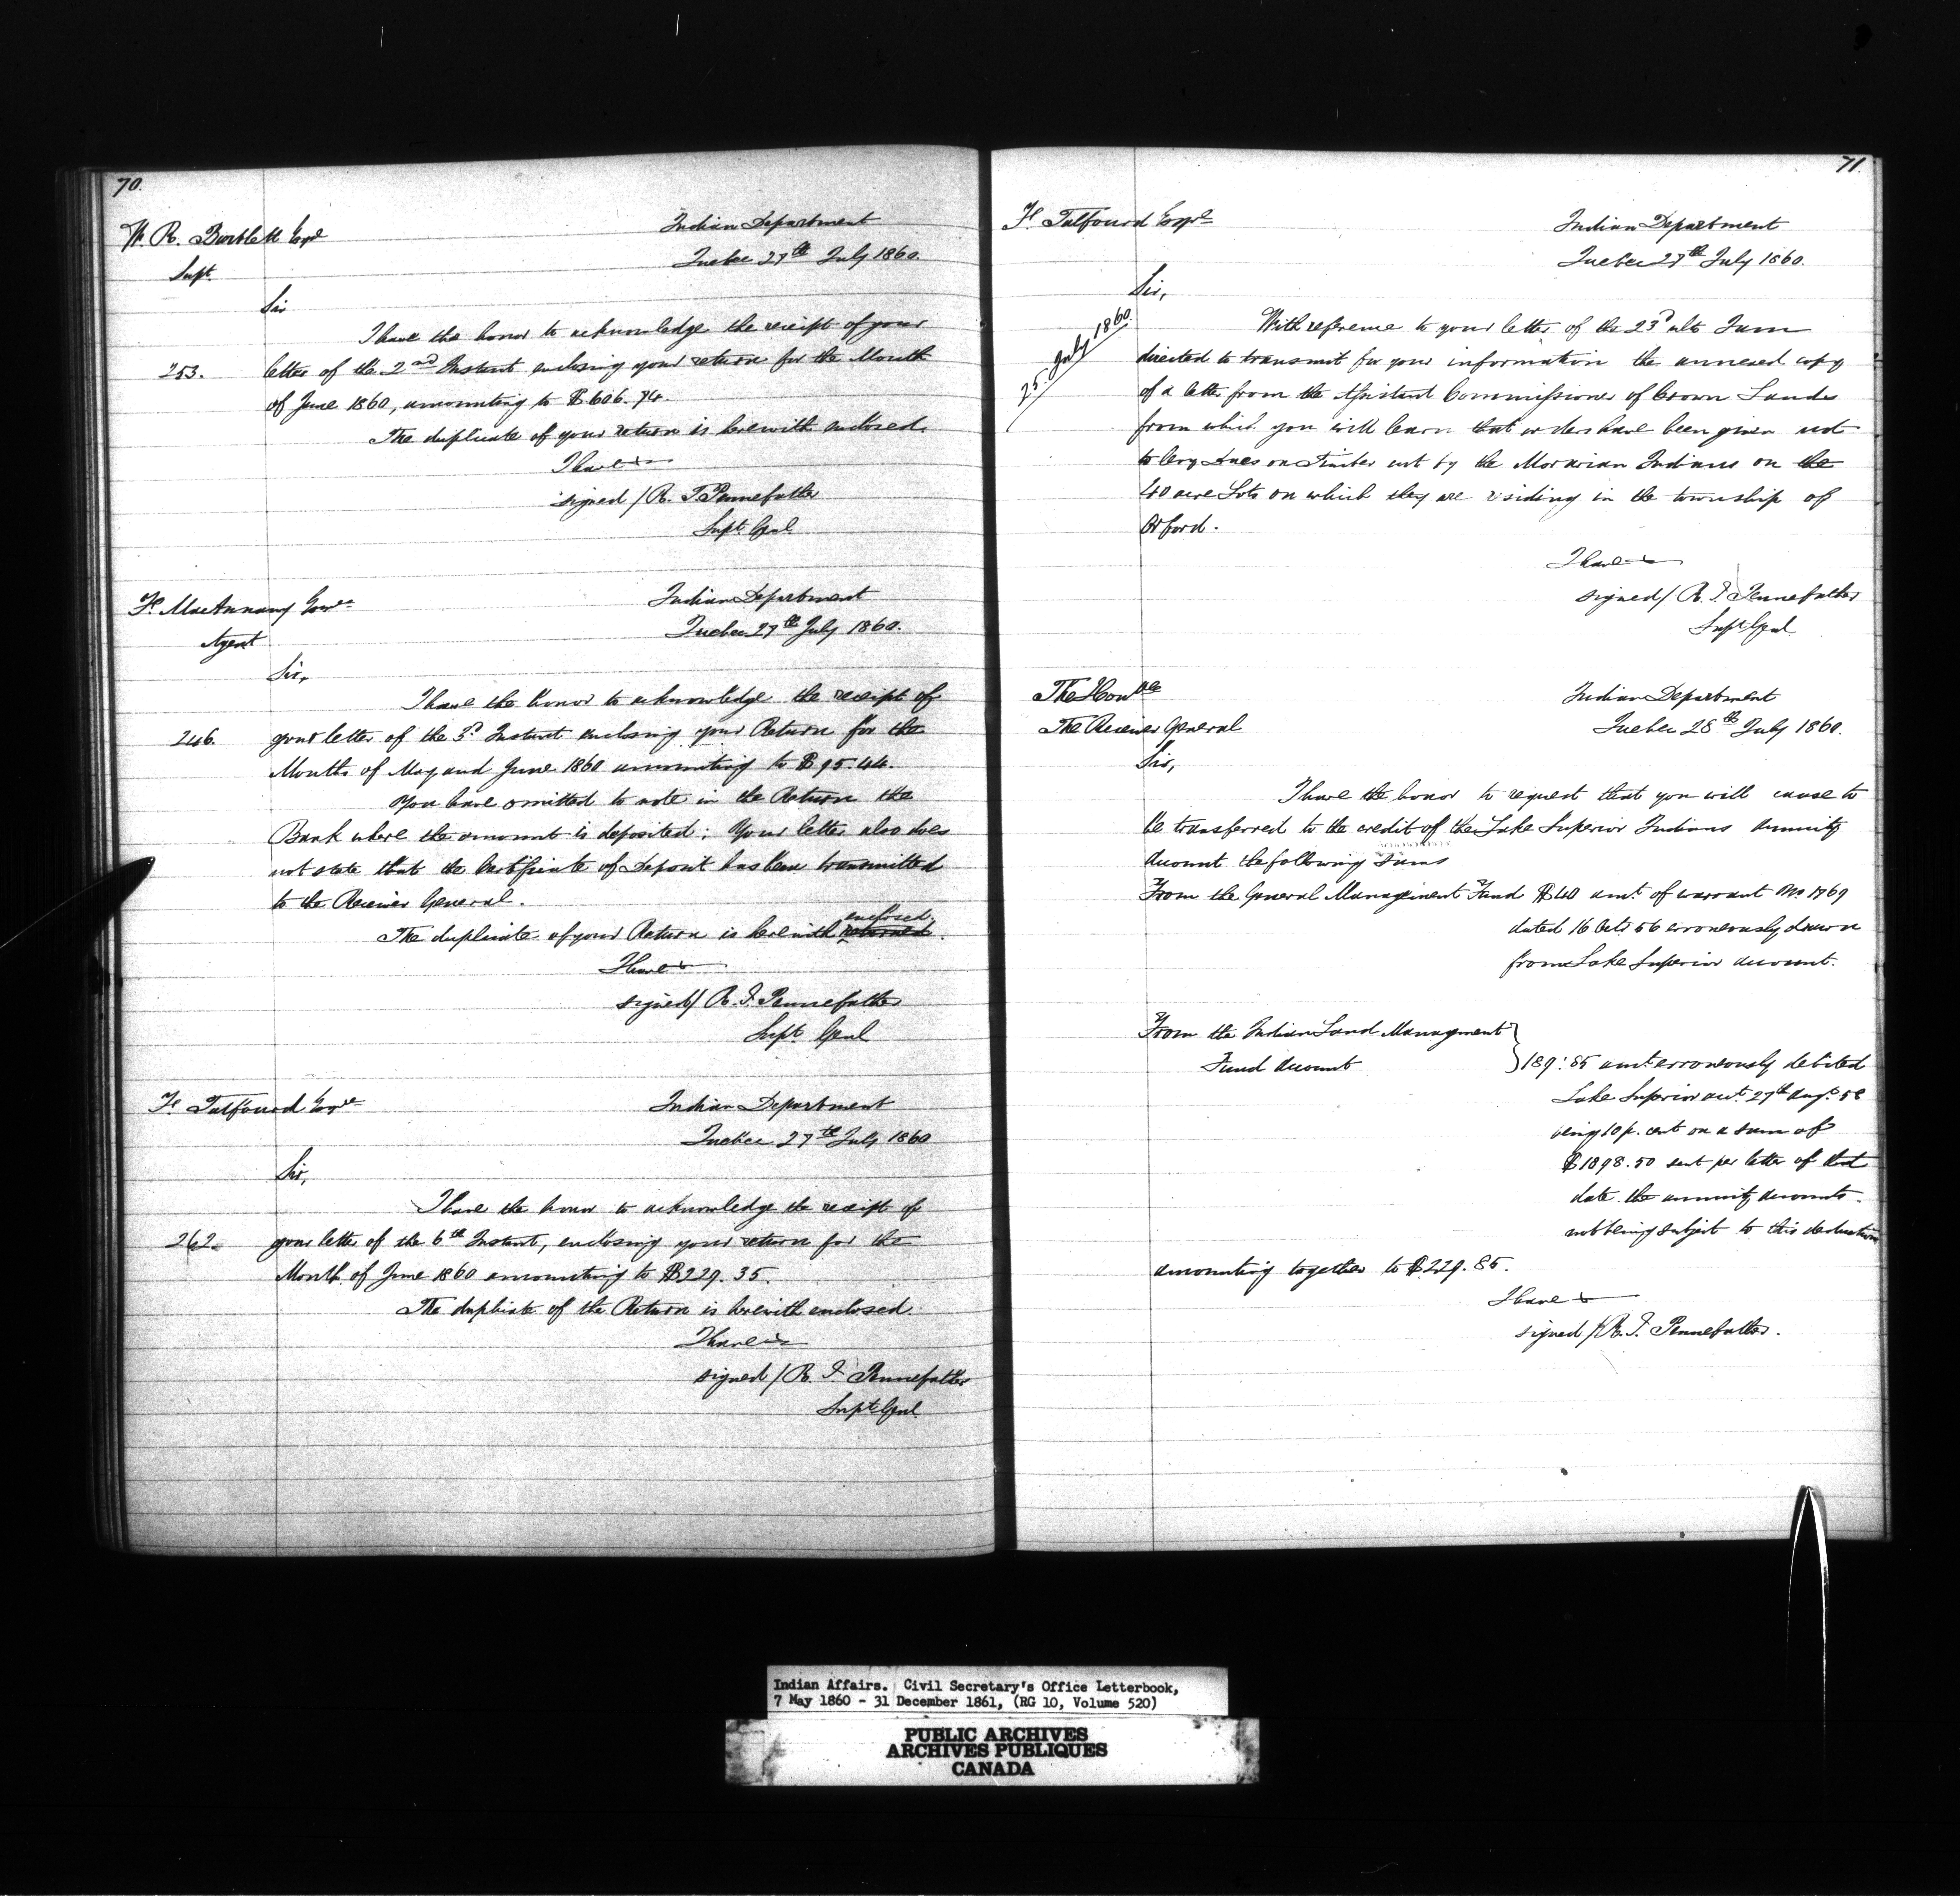 70.
W. R. Bartlett Esqre
Supt.
Indian Department
Quebec 27th July 1860.
Sir
I have the honor to acknowledge the receipt of your
253.
letter of the 2nd Instant enclosing your return for the Month
of June 1860, amounting to $606.74.
The duplicate of your return is herewith enclosed.
I have &
signed / R. T. Pennefather
Supt. Genl
Fs MacAnnany Esqre
Agent
Indian Department
Quebec 27th July 1860.
Sir,
I have the honor to acknowledge the receipt of
246.
your letter of the 3d Instant enclosing your Return for the
Months of May and June 1860 amounting to $95.44.
You have omitted to note in the Return the
Bank where the amount is deposited: Your letter also does
not state that the Certificate of Deposit has been transmitted
to the Receiver General.
enclosed.
The duplicate of your Return is herewith returned.
I have &
signed/ R. T. Pennefather
Supt. Genl
Fs Talfourd Esqre
Indian Department
Quebec 27th July 1860
Sir,
I have the honor to acknowledge the receipt of
262.
your letter of the 6th Instant, enclosing your return for the
Month of June 1860 amounting to $229.35.
The duplicate of the Return is herewith enclosed
I have &
signed / R. T. Pennefather
Supt Genl.
71.
Fs Talfourd Esqre
Indian Department
Quebec 27th July 1860.
Sir,
25. July 1860.
With reference to your letter of the 23d ulto I am
directed to transmit for your information the annexed copy
of a letter from the Assistant Commissioner of Crown Lands
from which you will learn that orders have been given not
to levy dues on Timber cut by the Moravian Indians on the
40 acre Lots on which they are residing in the township of
Orford.
I have &
signed/ R. T. Pennefather
Supt Genl
The Honble
The Receiver General
Indian Department
Quebec 28th July 1860.
Sir,
I have the honor to request that you will cause to
be transferred to the credit of the Lake Superior Indians Annuity
Account the following sums
From the General Management Fund $40 amt. of warrant No. 1769
dated 16 Octr 56 erroneously drawn
from Lake Superior account.
From the Indian Land Management
Fund Account
189.85 amt. erroneously debited
Lake Superior acct. 27th Augt. 58
being 10 p. cent on a sum of
$1898.50 sent per letter of that
date. the annuity accounts.
not being subject to this deduction
amounting together to $229.85.
I have &
signed / R. T. Pennefather.
Indian Affairs. Civil Secretary's Office Letterbook,
7 May 1860 - 31 December 1861, (RG 10, Volume 520)
PUBLIC ARCHIVES
ARCHIVES PUBLIQUES
CANADA